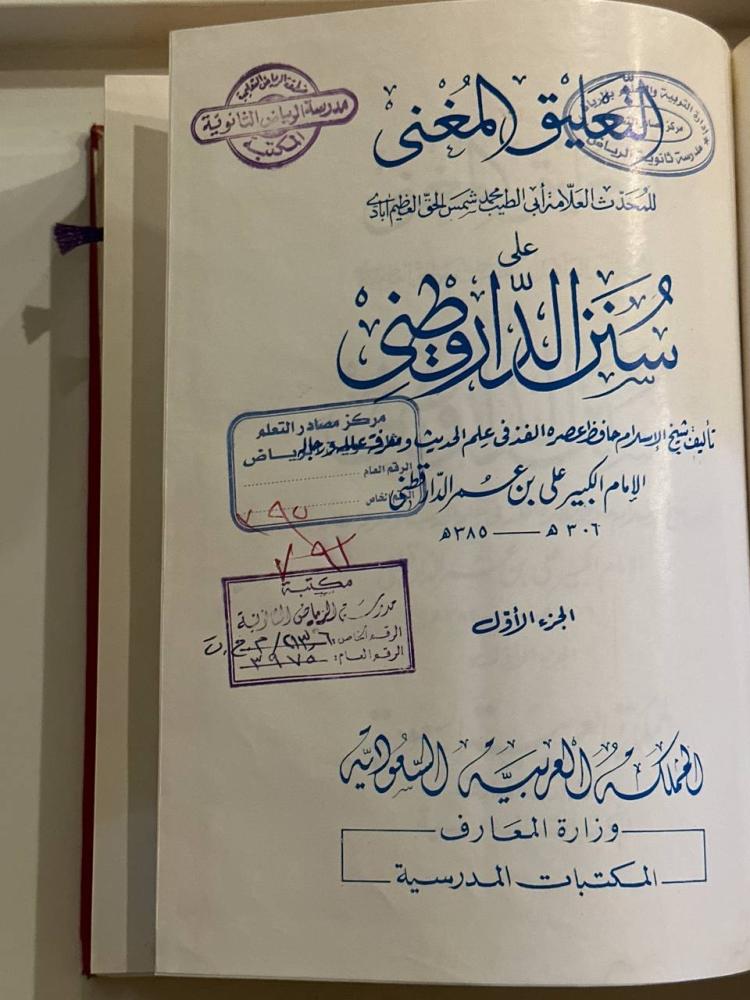 التعليق المغني
للمحدث العلامة أبي الطيب محمد شمس الحق العظيم آبادي
على
سنن الدارقطني
تأليف شيخ الإسلام حافظ عصره الفذ في علم الحديث ومعرفة علله ورجاله
الإمام الكبير علي بن عمر الدارقطني
٣٠٦ هـ — ٣٨٥ هـ
الجزء الأول
المملكة العربية السعودية
وزارة المعارف
المكتبات المدرسية
منطقة الرياض التعليمية
مدرسة الرياض الثانوية
المكتبة
إدارة التربية والتعليم بالرياض
مركز مصادر التعلم
مدرسة ثانوية الرياض
مركز مصادر التعلم
الرقم العام
الرقم الخاص
٧٩٥
٧٩٢
مكتبة
مدرسة الرياض الثانوية
الرقم الخاص:
الرقم العام: ٣٩٧٥